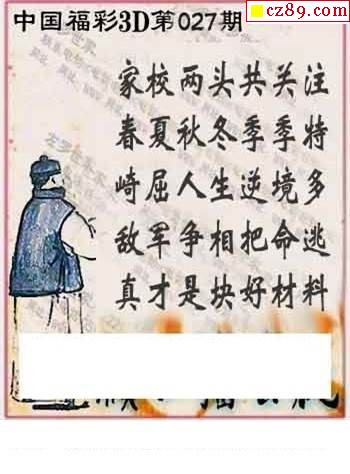 cz89.com
中国福彩3D第027期
家校两头共关注
春夏秋冬季季特
崎屈人生逆境多
敌军争相把命逃
真才是块好材料